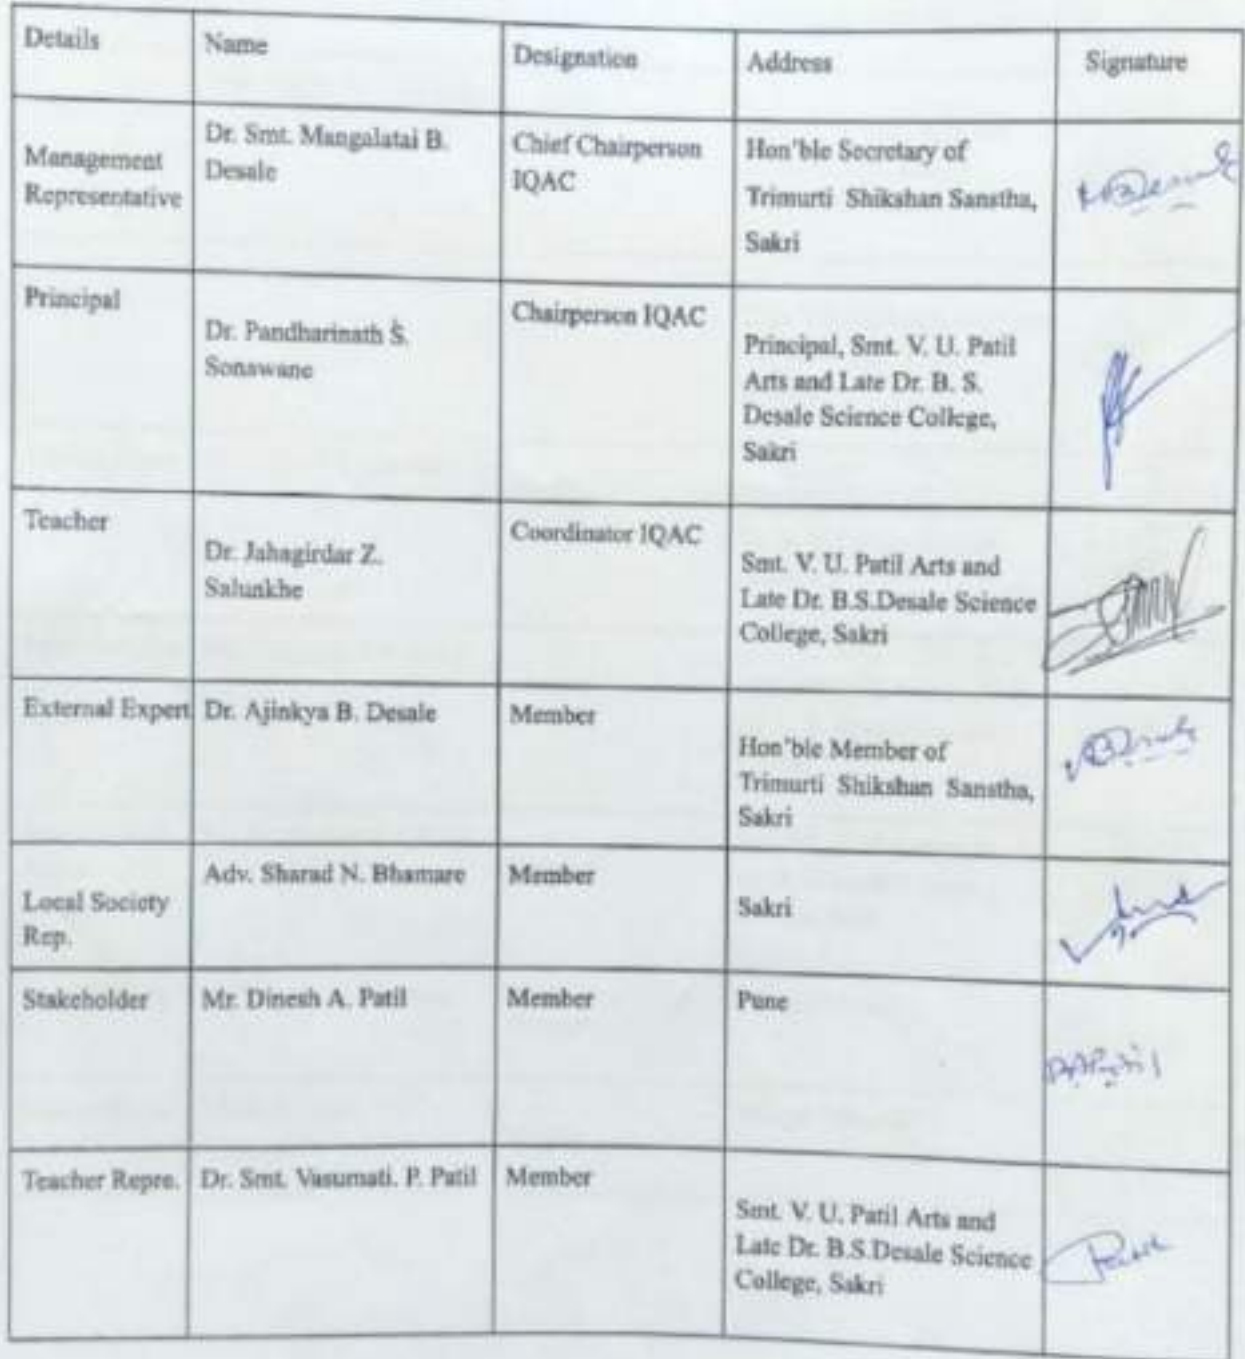 Details Name Designation Address Signature
Management
Representative
Dr. Smt. Mangalatai B.
Desale
Chief Chairperson
IQAC
Hon'ble Secretary of
Trimurti Shikshan Sanstha,
Sakri
Principal
Dr. Pandharinath S.
Sonawane
Chairperson IQAC
Principal, Smt. V. U. Patil
Arts and Late Dr. B. S.
Desale Science College,
Sakri
Teacher
Dr. Jahagirdar Z.
Salunkhe
Coordinator IQAC
Smt. V. U. Patil Arts and
Late Dr. B.S.Desale Science
College, Sakri
External Expert
Dr. Ajinkya B. Desale
Member
Hon'ble Member of
Trimurti Shikshan Sanstha,
Sakri
Local Society
Rep.
Adv. Sharad N. Bhamare
Member
Sakri
Stakeholder
Mr. Dinesh A. Patil
Member
Pune
DAPatil
Teacher Repre.
Dr. Smt. Vasumati. P. Patil
Member
Smt. V. U. Patil Arts and
Late Dr. B.S.Desale Science
College, Sakri